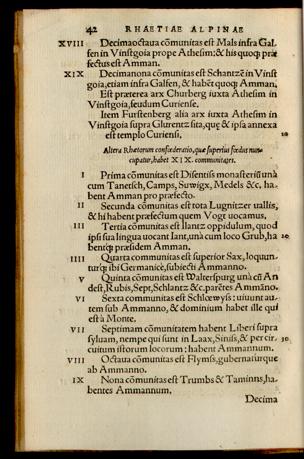 42 RHAETIAE ALPINAE
XVIII Decimaoctaua cõmunitas est Mals infra Gal-
sen in Vinstgoia prope Athesim; & his quoq; præ
fectus est Amman.
XIX Decimanona cõmunitas est Schantzẽ in Vinst
goia, etiam infra Galsen, & habẽt quoq; Amman.
Est præterea arx Churberg iuxta Athesim in
Vinstgoia, feudum Curiense.
Item Furstenberg alia arx iuxta Athesim in
Vinstgoia supra Glurentz sita, quę & ipsa annexa
est templo Curiensi. 20
Altera Rhætorum confœderatio, quæ superius fœdus nun-
cupatur, habet XIX. communitates.
I Prima cõmunitas est Disentis monasteriũ unà
cum Tanetsch, Camps, Suwigx, Medels &c, ha-
bent Amman pro præfecto.
II Secunda cõmunitas est tota Lugnitzer uallis,
& hi habent præfectum quem Vogt uocamus.
III Tertia cõmunitas est Ilantz oppidulum, quod
ipsi sua lingua uocant Iant, unà cum loco Grub, ha
bentq; præsidem Amman.
IIII Quarta communitas est superior Sax, loquun-
turq; ibi Germanicè, subiecti Ammanno.
V Quinta cõmunitas est Walterspurg unà cũ An
dest, Rubis, Sept, Schlantz &c. parẽtes Ammãno.
VI Sexta communitas est Schlewyß: uiuunt au-
tem sub Ammanno, & dominium habet ille qui
est à Monte.
VII Septimam cõmunitatem habent Liberi supra
syluam, nempe qui sunt in Laax, Siniß, & per cir- 30
cuitum istorum locorum: habent Ammannum.
VIII Octaua cõmunitas est Flymß, gubernaturque
ab Ammanno.
IX Nona cõmunitas est Trumbs & Taminns, ha-
bentes Ammannum.
Decima